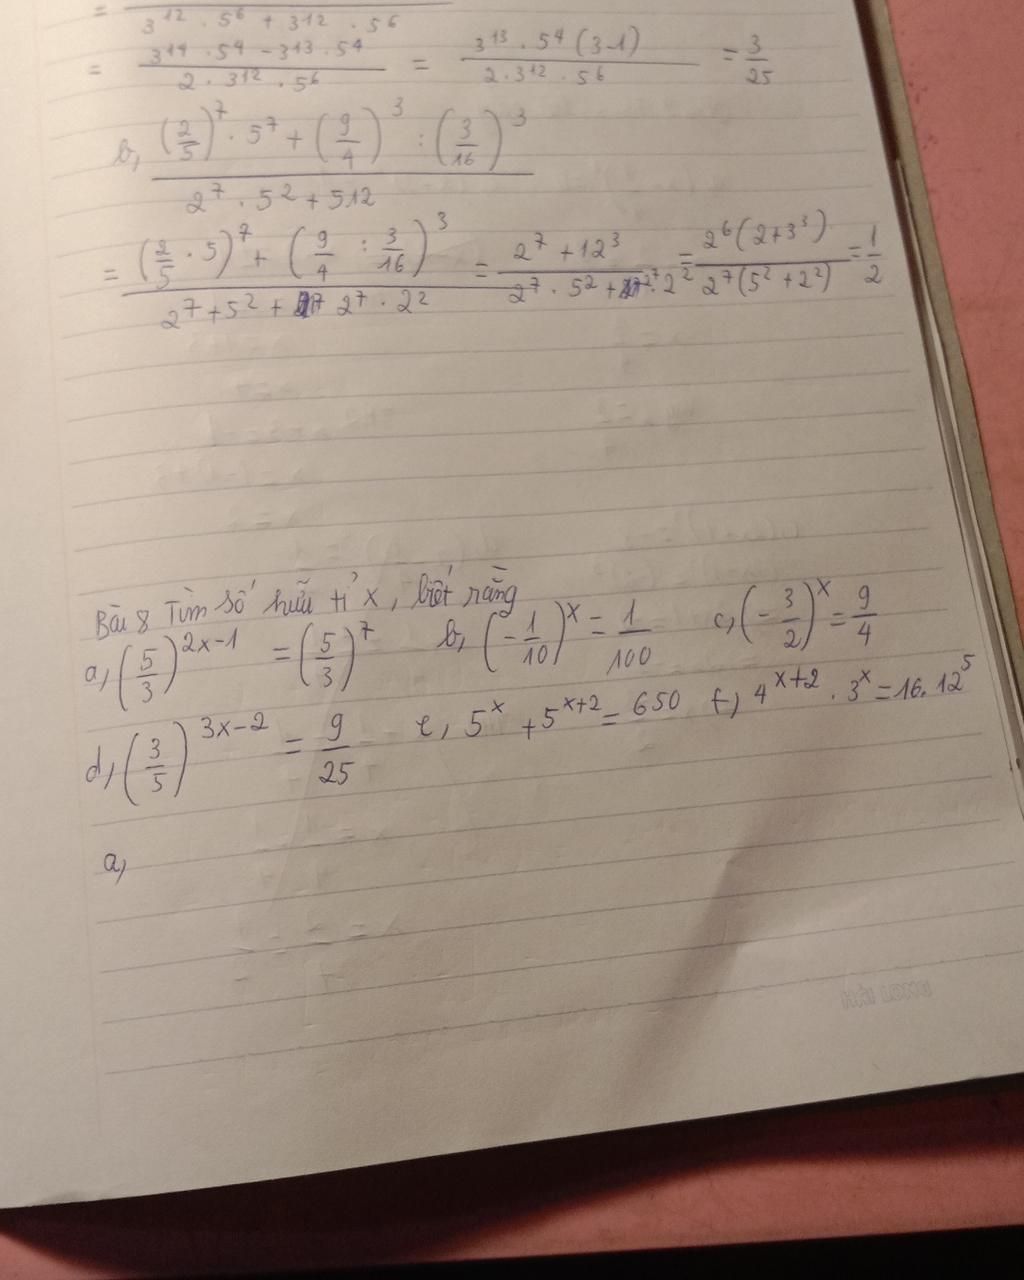 = 3^12 . 5^6 + 3^12 . 5^6
= (3^14 . 5^4 - 3^13 . 5^4)/(2 . 3^12 . 5^6) = (3^13 . 5^4 (3-1))/(2 . 3^12 . 5^6) = 3/25
b, ((2/5)^7 . 5^7 + (9/4)^3 : (3/16)^3)/(2^7 . 5^2 + 512)
= ((2/5 . 5)^7 + (9/4 : 3/16)^3)/(2^7 + 5^2 + 2^7 . 2^2) = (2^7 + 12^3)/(2^7 . 5^2 + 2^7 . 2^2) = (2^6 (2+3^3))/(2^7 (5^2 + 2^2)) = 1/2
Bài 8 Tìm số hữu tỉ x, biết rằng
a, (5/3)^(2x-1) = (5/3)^7 b, (-1/10)^x = 1/100 c, (-3/2)^x = 9/4
d, (3/5)^(3x-2) = 9/25 e, 5^x + 5^(x+2) = 650 f, 4^(x+2) . 3^x = 16. 12^5
a,
HẢI LONG